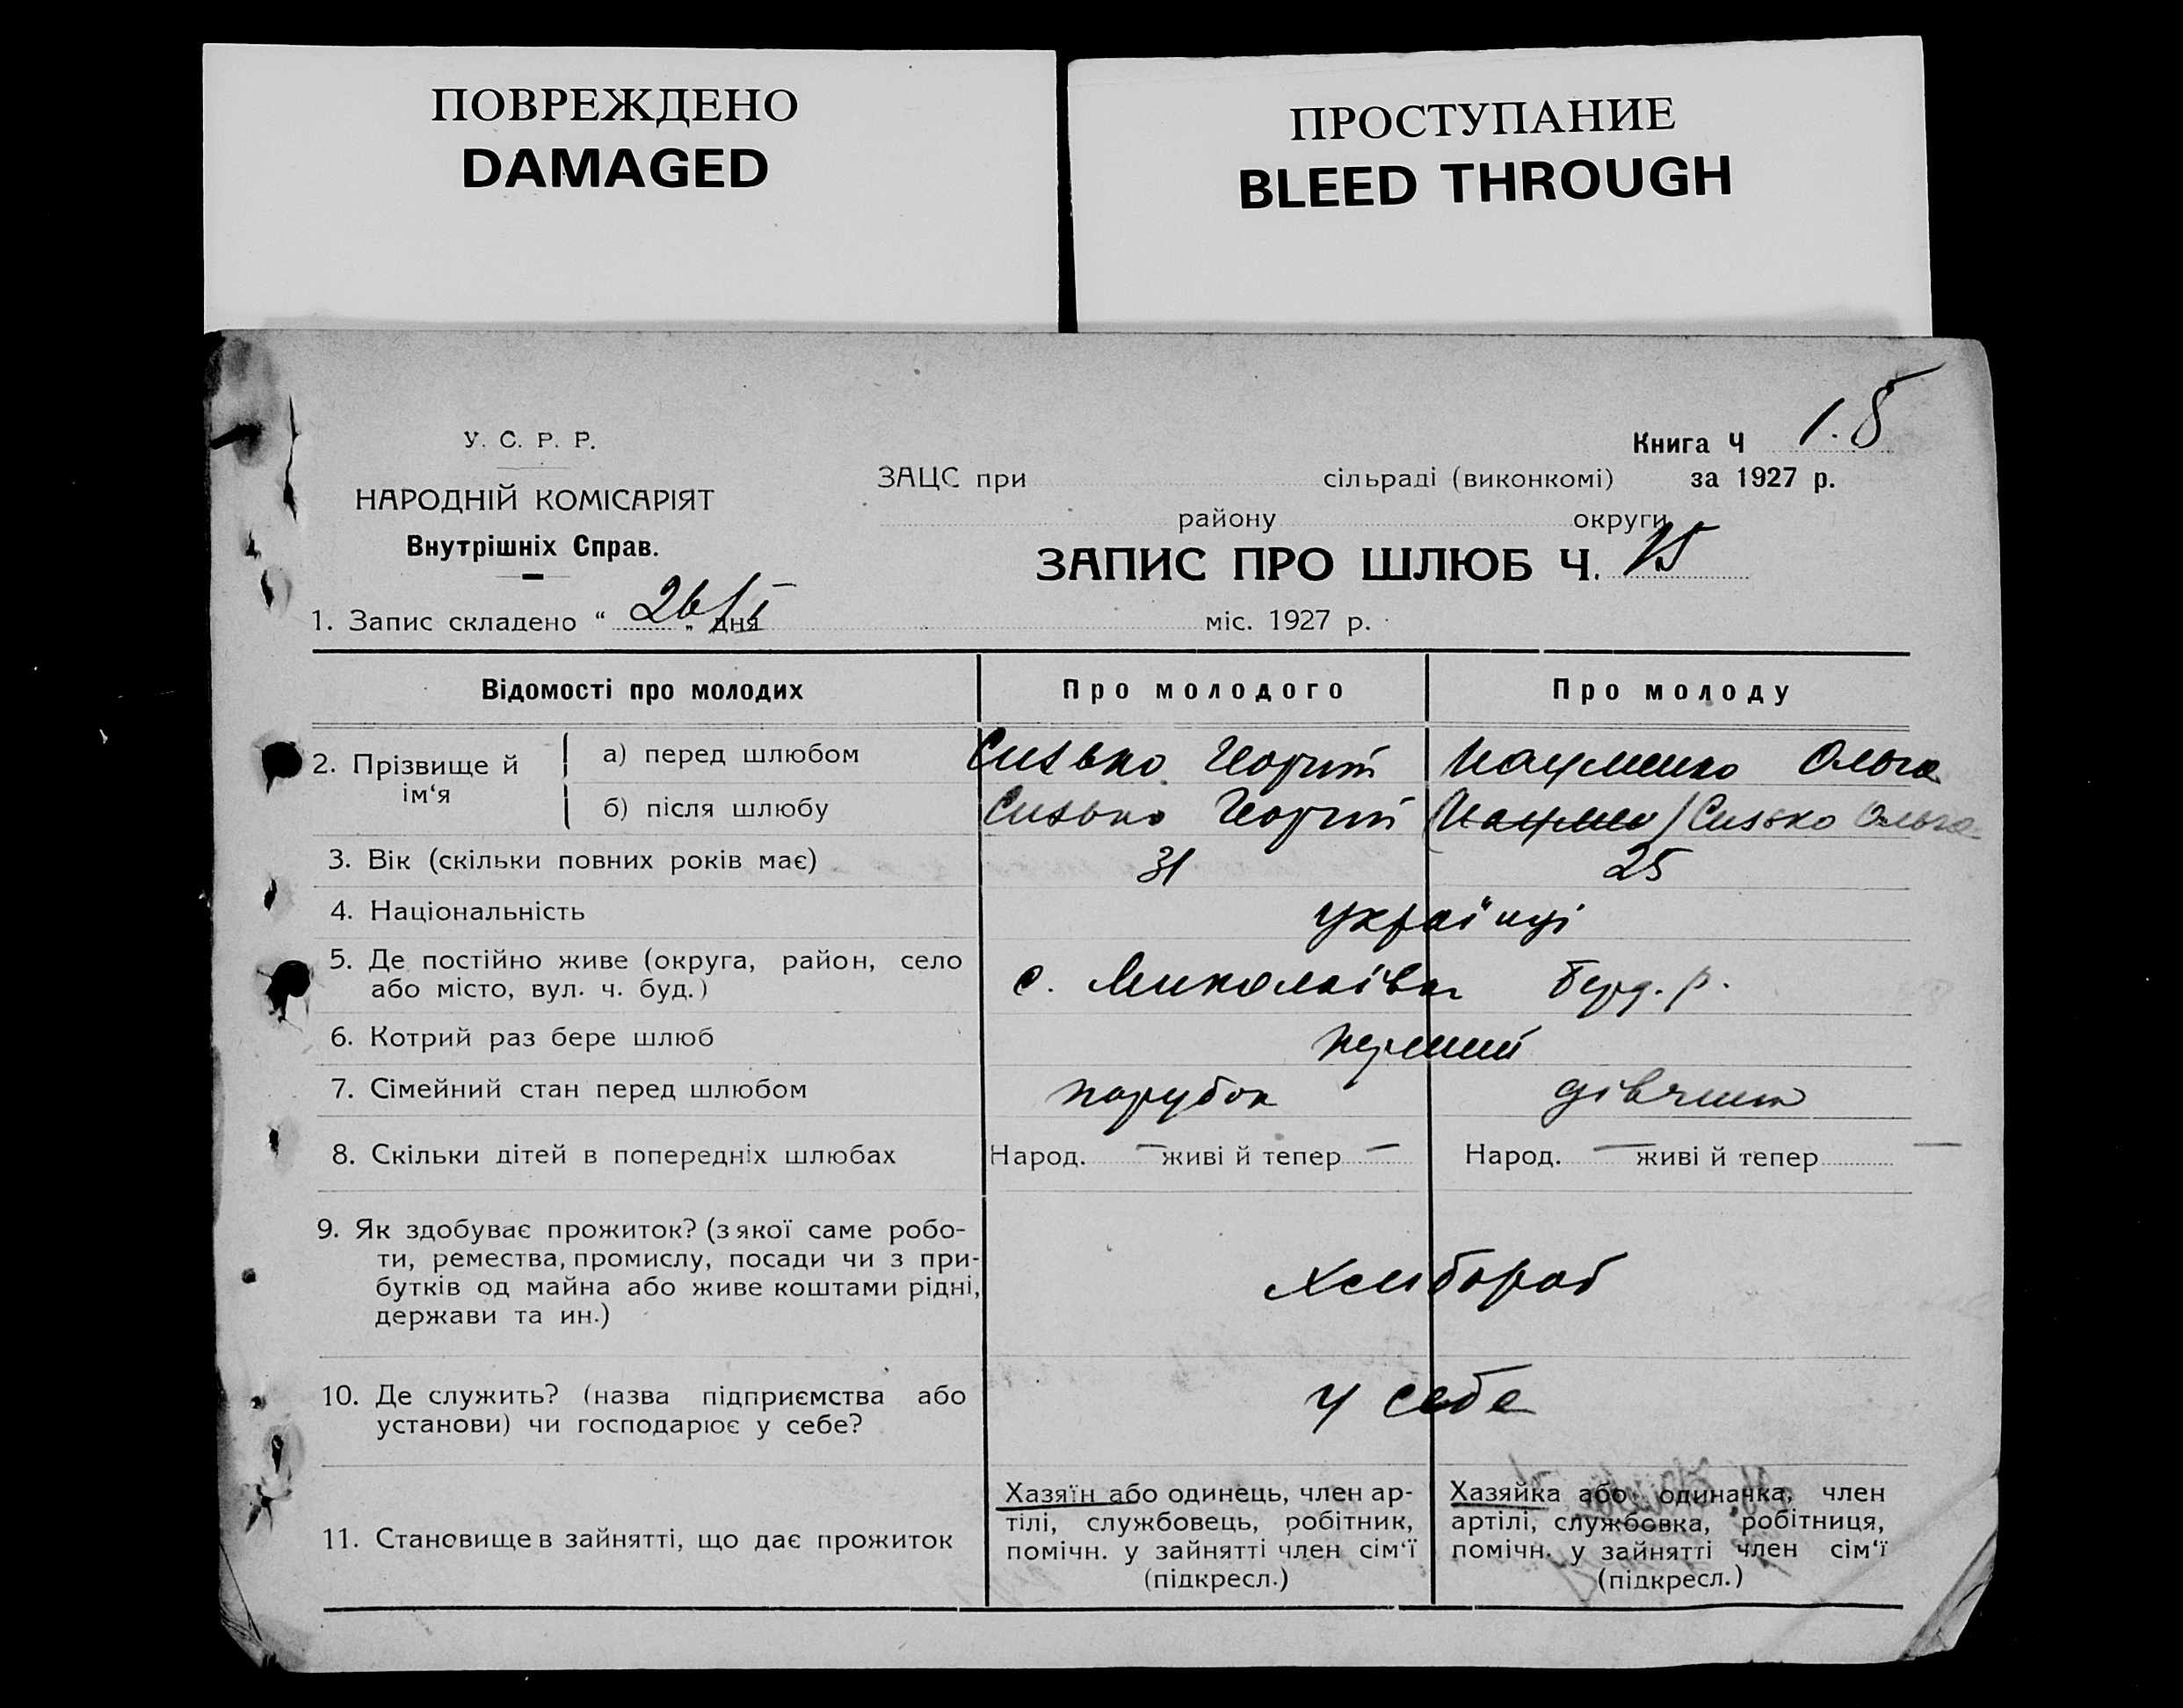 ПОВРЕЖДЕНО
DAMAGED
ПРОСТУПАНИЕ
BLEED THROUGH
У. С. Р. Р.
НАРОДНІЙ КОМІСАРІЯТ
Внутрішніх Справ.
Книга Ч
ЗАЦС при сільраді (виконкомі) за 1927 р.
району округи
ЗАПИС ПРО ШЛЮБ Ч. 15
1. Запис складено “ 26/I „ дня міс. 1927 р.
Відомості про молодих Про молодого Про молоду
2. Прізвище й ім‘я
а) перед шлюбом Сизько Георгій Науменко Ольга
б) після шлюбу Сизько Георгій Сизько Ольга
3. Вік (скільки повних років має) 31 25
4. Національність українці
5. Де постійно живе (округа, район, село
або місто, вул. ч. буд.) с. Миколаівка Берд. р.
6. Котрий раз бере шлюб перший
7. Сімейний стан перед шлюбом парубок дівчина
8. Скільки дітей в попередніх шлюбах Народ. — живі й тепер — Народ. — живі й тепер —
9. Як здобуває прожиток? (з якої саме робо-
ти, ремества, промислу, посади чи з при-
бутків од майна або живе коштами рідні,
держави та ин.) хлібороб
10. Де служить? (назва підприємства або
установи) чи господарює у себе? у себе
11. Становище в зайнятті, що дає прожиток
Хазяїн або одинець, член ар-
тілі, службовець, робітник,
помічн. у зайнятті член сім‘ї
(підкресл.)
Хазяйка або одиначка, член
артілі, службовка, робітниця,
помічн. у зайнятті член сім‘ї
(підкресл.)